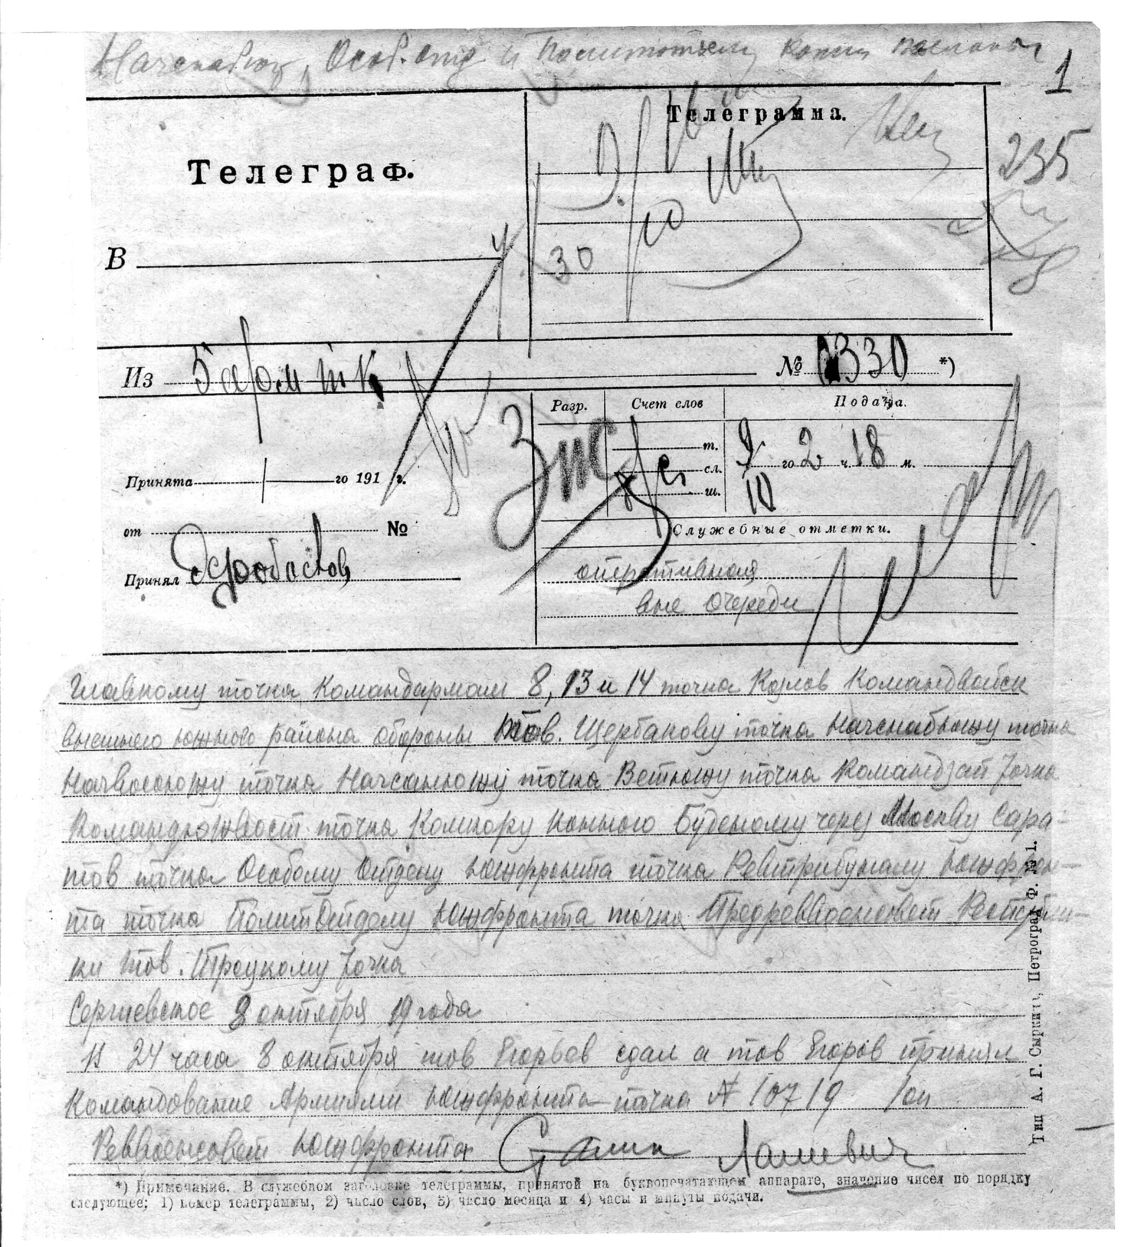 Начснабюж, Особ. отд и Политотделу копии посланы
1
Телеграмма.
235
Телеграф.
В
30
Из
№ 330 *)
Разр. Счет слов Подача.
т.
9/X го 2 ч. 18 м.
сл.
ш.
Принята го 191 г.
Служебные отметки.
от №
оперативная
Принял
вне очереди
Главкому точка Командармам 8, 13 и 14 точка Козлов Командвойск
внешнего южного района обороны тов. Щербакову точка Начснабюжу точка
точка Начсанюжу точка точка точка
точка Комкору конного Буденому через Москву Сара-
тов точка Особому Отделу южфронта точка Ревтрибуналу южфрон-
та точка ПолитОтделу южфронта точка Предреввоенсовет Республи-
ки тов. Троцкому точка
Сергиевское 8 октября 19 года
В 24 часа 8 октября тов Егорьев сдал а тов Егоров принял
Командование Армиями южфронта точка № 10719
Реввоенсовет южфронта Сталин Лашевич
*) Примечание. В служебном заголовке телеграммы, принятой на буквопечатающем аппарате, значение чисел по порядку
следующее: 1) номер телеграммы, 2) число слов, 3) число месяца и 4) часы и минуты подачи.
Тип А. Г. Сыркин, Петроград Ф. № 1.